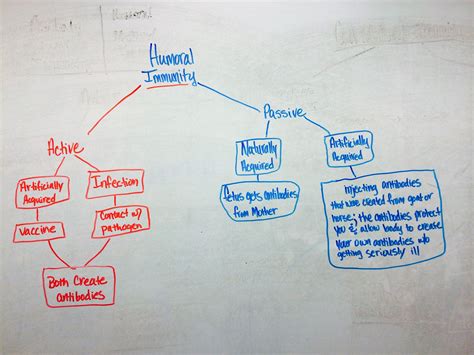 Humoral
Immunity
Active
Passive
Artificially
Acquired
Infection
Vaccine
Contact w/
pathogen
Both Create
antibodies
Naturally
Acquired
Fetus gets antibodies
from Mother
Artificially
Acquired
Injecting antibodies
that were created from goat or
horse; the antibodies protect
you & allow body to create
your own antibodies w/o
getting seriously ill